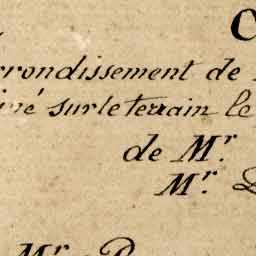 C
rrondissement de
iné sur le terrain le
de Mr.
Mr.
Mr.